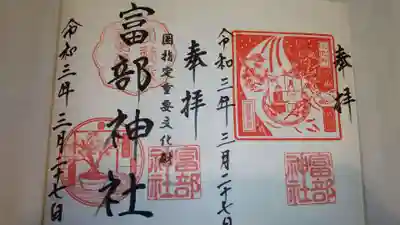 奉拝
令和三年三月二十七日
冨部
神社
奉拝
国指定重要文化財
冨部神社
令和三年三月二十七日
冨部
神社